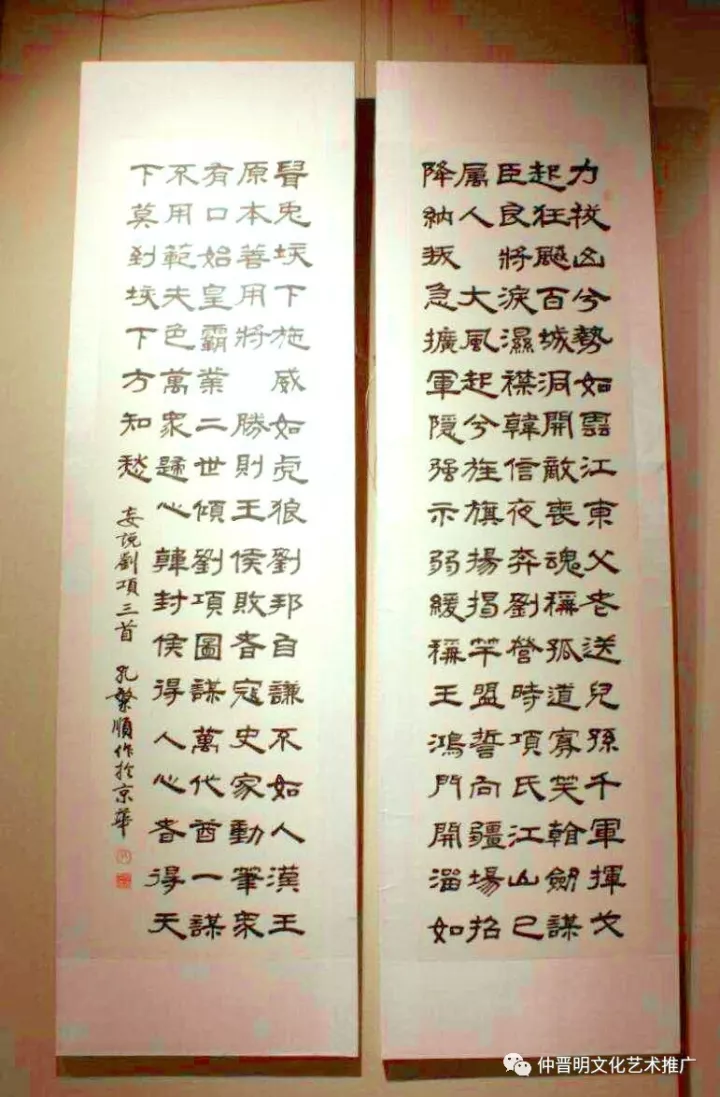 力拔山兮勢如雲江東父老送兒孫千軍揮戈
起狂飈百城洞開敵喪魂稱孤道寡笑翰劒謀
臣良將淚濕襟韓信夜奔劉營時項氏江山已
属人 大風起兮旌旗揚揭竿盟誓向疆場招
降納叛急擴軍隱强示弱緩稱王鴻門開溜如
兎垓下施威如虎狼劉邦自謙不如人漢王
原本善用將 勝則王侯敗者寇史家動筆衆
有口始皇霸業二世傾劉項圖謀萬代酋一謀
不用範夫色萬衆歸心韓封侯得人心者得天
下莫到垓下方知愁
妄說劉項三首 孔繁順作於京華
仲晋明文化艺术推广